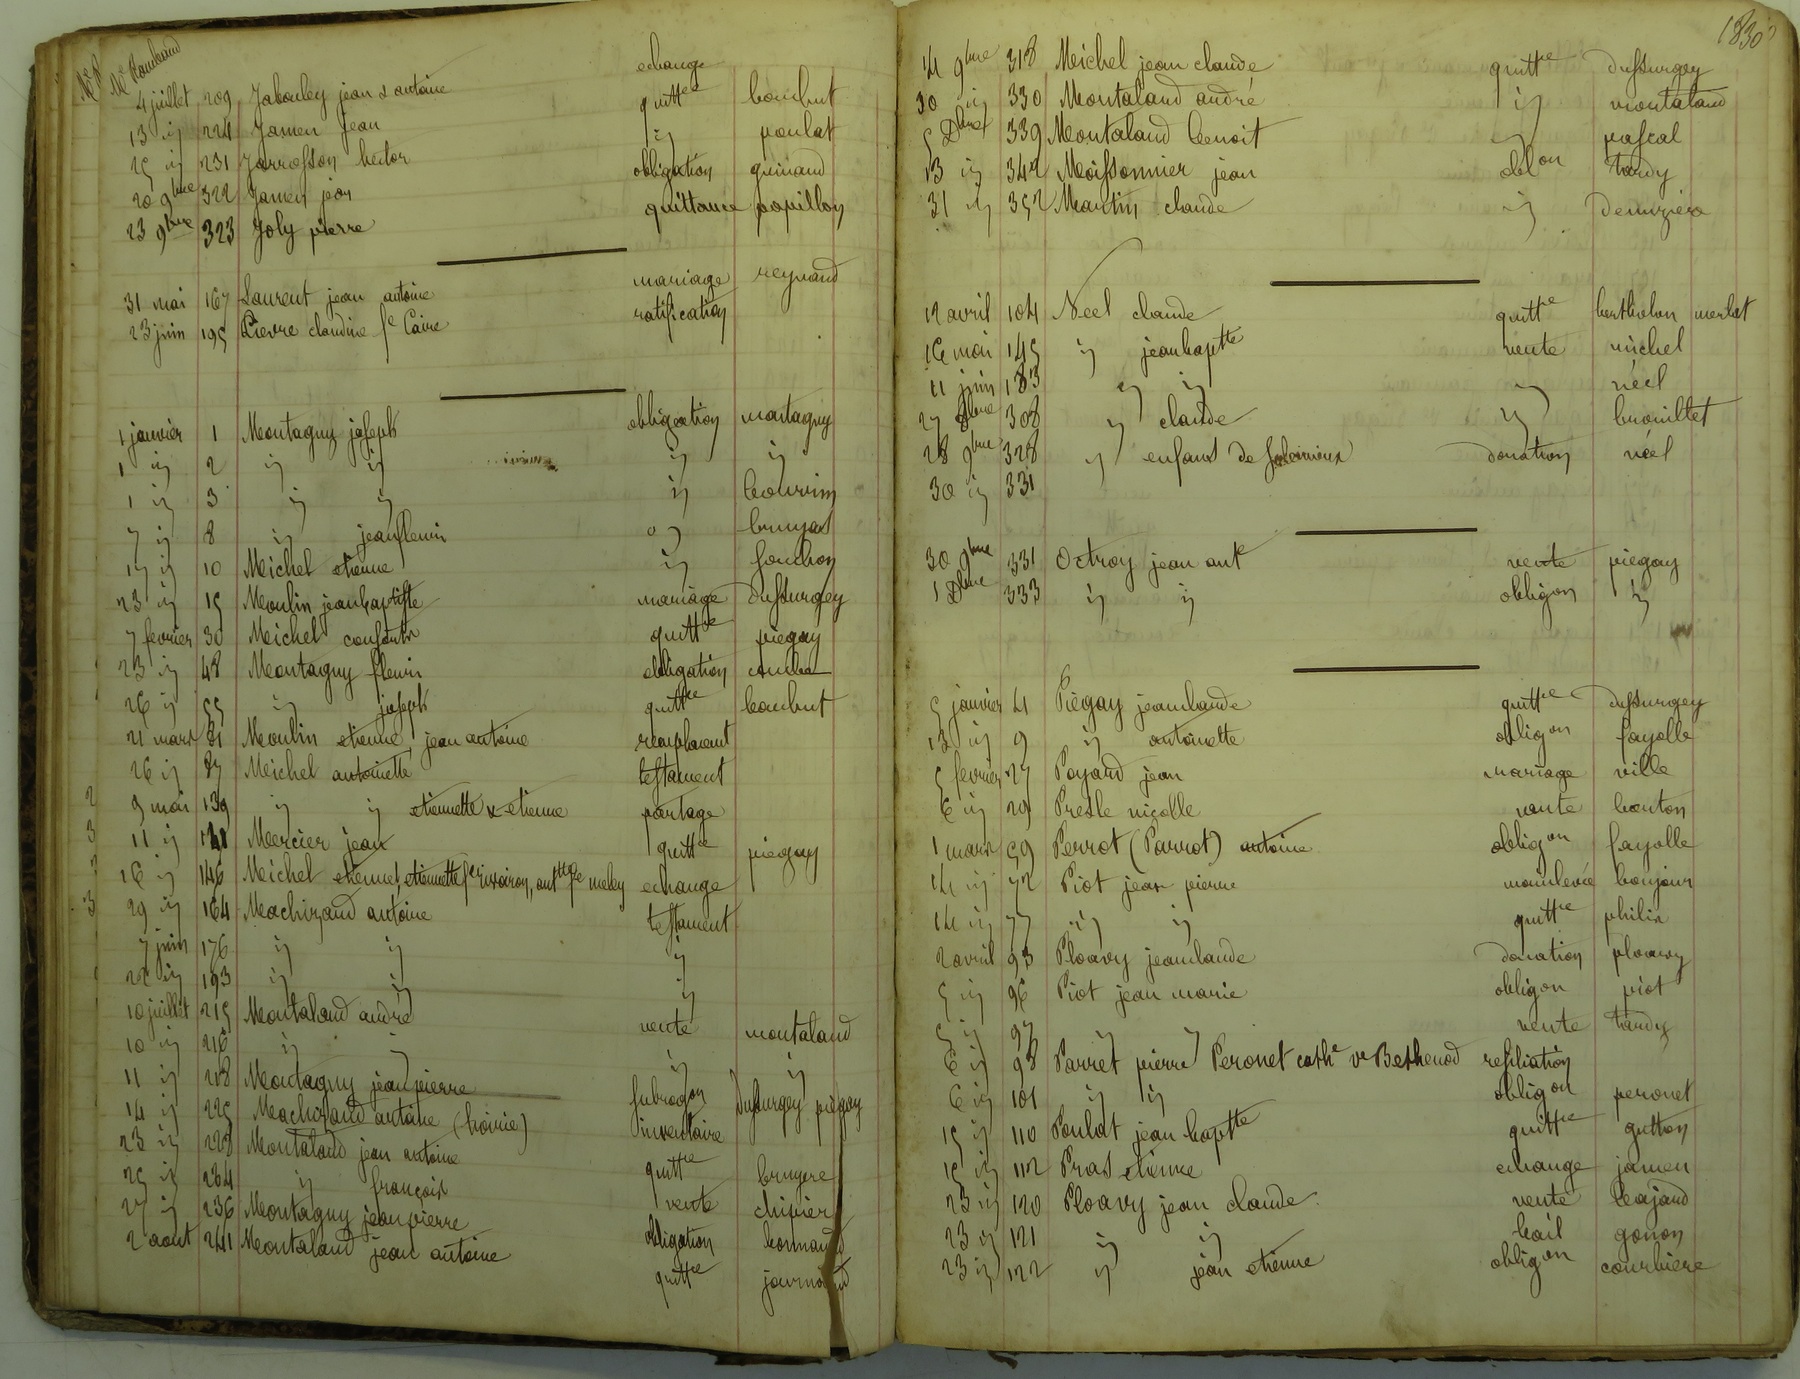 1830
4 juillet 209 Jabouley jean & antoine echange
13 ij 224 Jamen jean quitt^ce bouchut
25 ij 231 Jarrosson hector ij poulat
20 9^bre 322 Jamen jean obligation guinand
23 9^bre 323 Joly pierre quittance papillon
31 mai 167 Laurent jean antoine mariage reynaud
23 juin 195 Lievre claudine f^e Caire ratification
1 janvier 1 Montagny joseph obligation montagny
1 ij 2 ij ij ij ij
1 ij 3 ij ij ij bouvin
7 ij 8 ij jean fleury ij bruyas
17 ij 10 Michel etienne ij fouchon
23 ij 15 Moulin jean baptiste mariage Dussurgey
7 fevrier 30 Michel quitt^ce piegay
23 ij 48 Montagny fleuri obligation
26 ij 55 ij joseph quitt^ce bouchut
21 mars 81 Moulin etienne jean antoine remplacent
26 ij 87 Michel antoinette testament
9 mai 139 ij ij etiennette & etienne partage
11 ij 141 Mercier jean quitt^ce piegay
16 ij 146 Michel etienne, etiennette echange
29 ij 164 Machizaud antoine testament
7 juin 176 ij ij ij
22 ij 193 ij ij ij
10 juillet 215 Montaland andré vente montaland
10 ij 216 ij ij ij ij
11 ij 218 Montagny jean pierre subrogon Dussurgey piegay
14 ij 225 Machizaud antoine (hoirie) inventaire
23 ij 228 Montaland jean antoine quitt^ce bruyere
25 ij 234 ij françois vente chipier
27 ij 236 Montagny jean pierre obligation bonnand
2 aout 241 Montaland jean antoine quitt^ce journoud
14 9^bre 318 Michel jean claude quitt^ce dussurgey
30 ij 330 Montaland andré ij montaland
5 D^bre 339 Montaland benoit ij pascal
13 ij 342 Moissonnier jean obl^on tardy
31 ij 352 Martin claude ij Denuziere
12 avril 104 Néel claude quitt^e bertholon merlat
16 mai 145 ij jean bap^tte vente michel
11 juin 183 ij ij ij néel
27 8^bre 308 ij claude ij brouillet
28 9^bre 328 ij enfans de donation néel
30 ij 331
30 9^bre 331 Octroy jean ant^e vente piegay
1 D^bre 333 ij ij obligon ij
5 janvier 4 Piegay jean claude quitt^ce dussurgey
13 ij 9 ij antoinette oblig^on fayolle
5 fevrier 27 Poyard jean mariage ville
6 ij 29 Presle nicolle vente bonton
1 mars 59 Perrot (Parrot) antoine oblig^on fayolle
14 ij 72 Piot jean pierre mainlevée bonjour
14 ij 77 ij ij quitt^ce philix
2 avril 93 Ploavy jean claude donation ploavy
5 ij 96 Piot jean marie oblig^on piot
5 ij 97 ij ij vente tardy
6 ij 98 Parret pierre Peronet cath^e v^e Bethenod resiliation
6 ij 101 ij ij oblig^on peronet
15 ij 110 Poulat jean bap^tte quitt^ce gutton
15 ij 112 Pras etienne echange jamen
23 ij 120 Ploavy jean claude vente bajard
23 ij 121 ij ij bail gonon
23 ij 122 ij jean etienne oblig^on courbiere